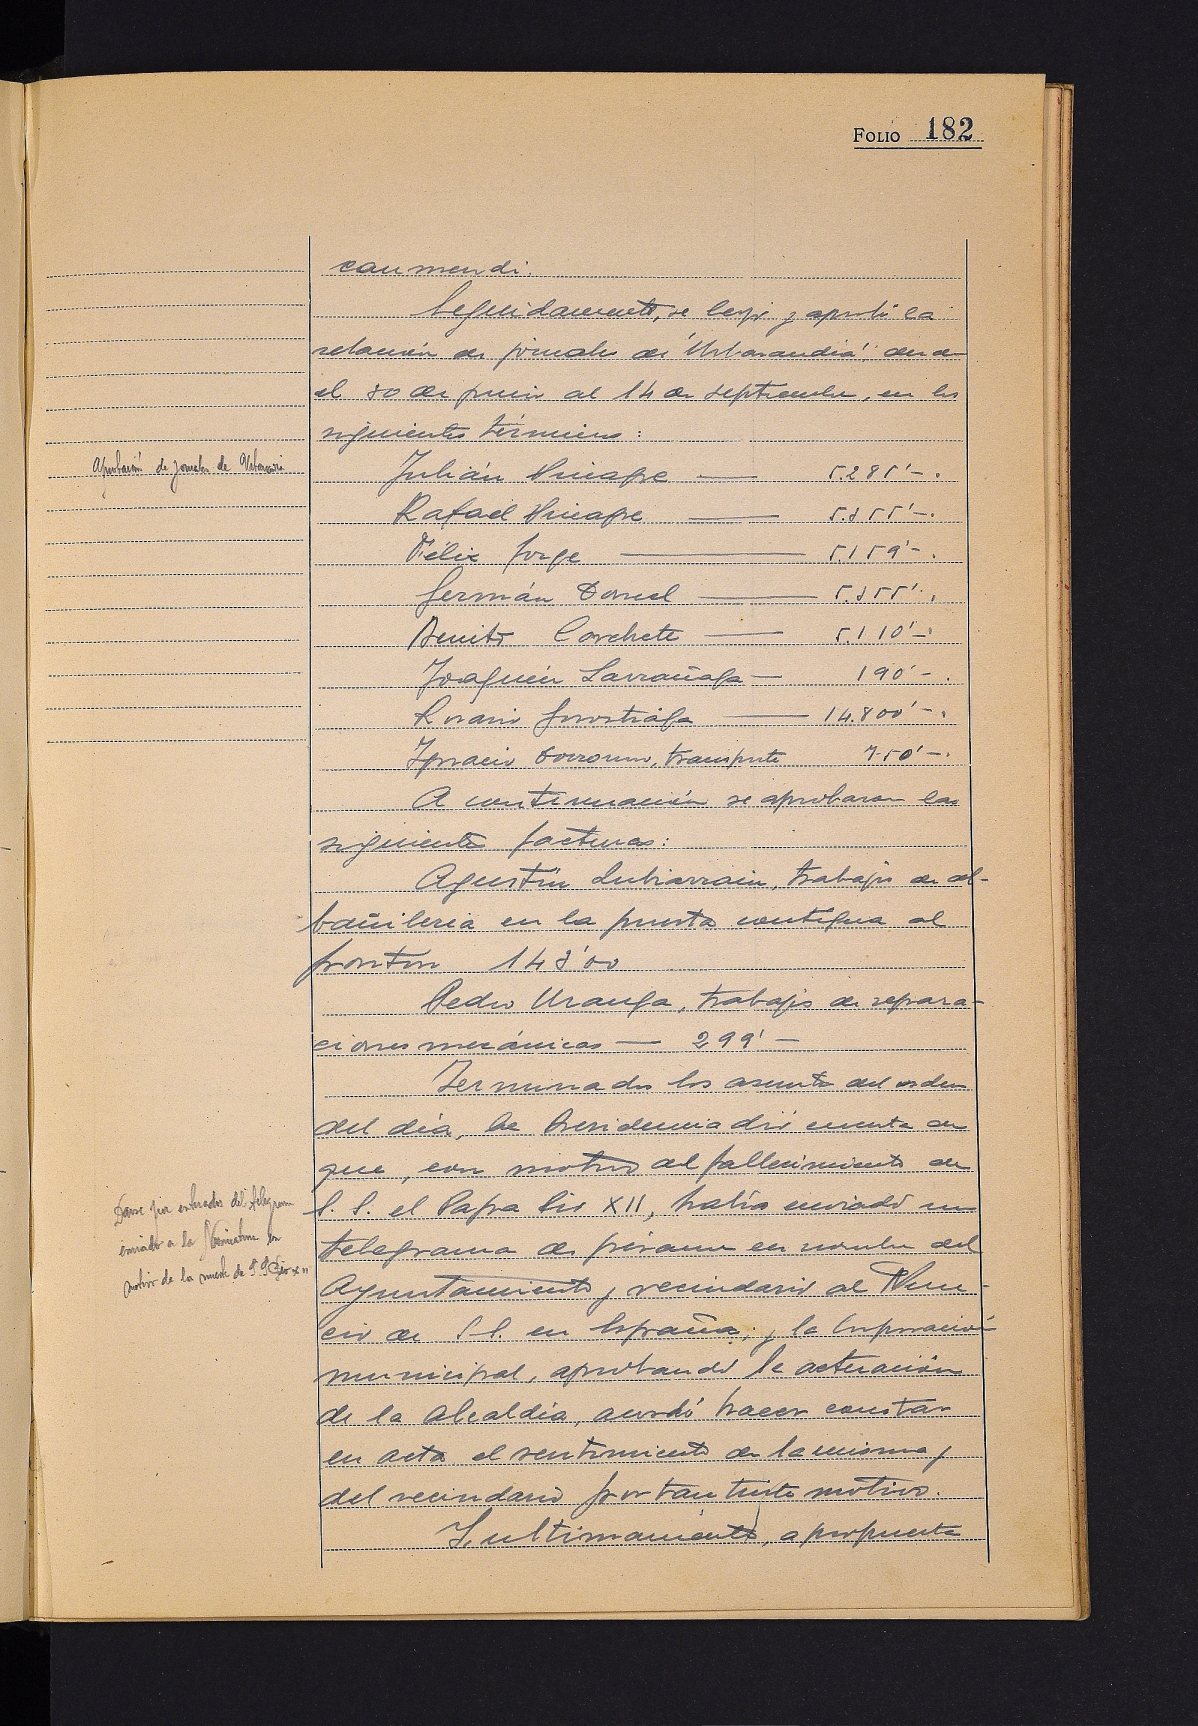 FOLIO 182
caumendi.
Seguidamente, se leyó y aprobó la
relación de jornales de "Urbarandia" desde
el 30 de junio al 14 de septiembre, en los
siguientes términos:
Aprobación de jornales de
Julián 5.285'-.
Rafael 5.355'-.
Félix Jorge 5.159'-.
Germán 5.355'-.
Benito Corchete 5.110'-.
Joaquín Larrañaga 190'-.
Rosario Gorostiaga 14.800'-.
Ignacio transporte 750'-.
A continuación se aprobaron las
siguientes facturas:
Agustín trabajos de al-
bañilería en la puerta contigua al
frontón 143'00
Pedro Uranga, trabajos de repara-
ciones mecánicas — 299'—
Terminados los asuntos del orden
del día, la Presidencia dió cuenta de
que, con motivo del fallecimiento de
S. S. el Papa Pío XII, había enviado un
telegrama de pésame en nombre del
Ayuntamiento y vecindario al Nun-
cio de S.S. en España, y la Corporación
municipal, aprobando la actuación
de la Alcaldía, acordó hacer constar
en acta el sentimiento de la misma y
del vecindario por tan triste motivo.
Darse por enterados del telegrama
enviado a la Nunciatura con
motivo de la muerte de S.S. Pío XII
Y, ultimamente, a propuesta